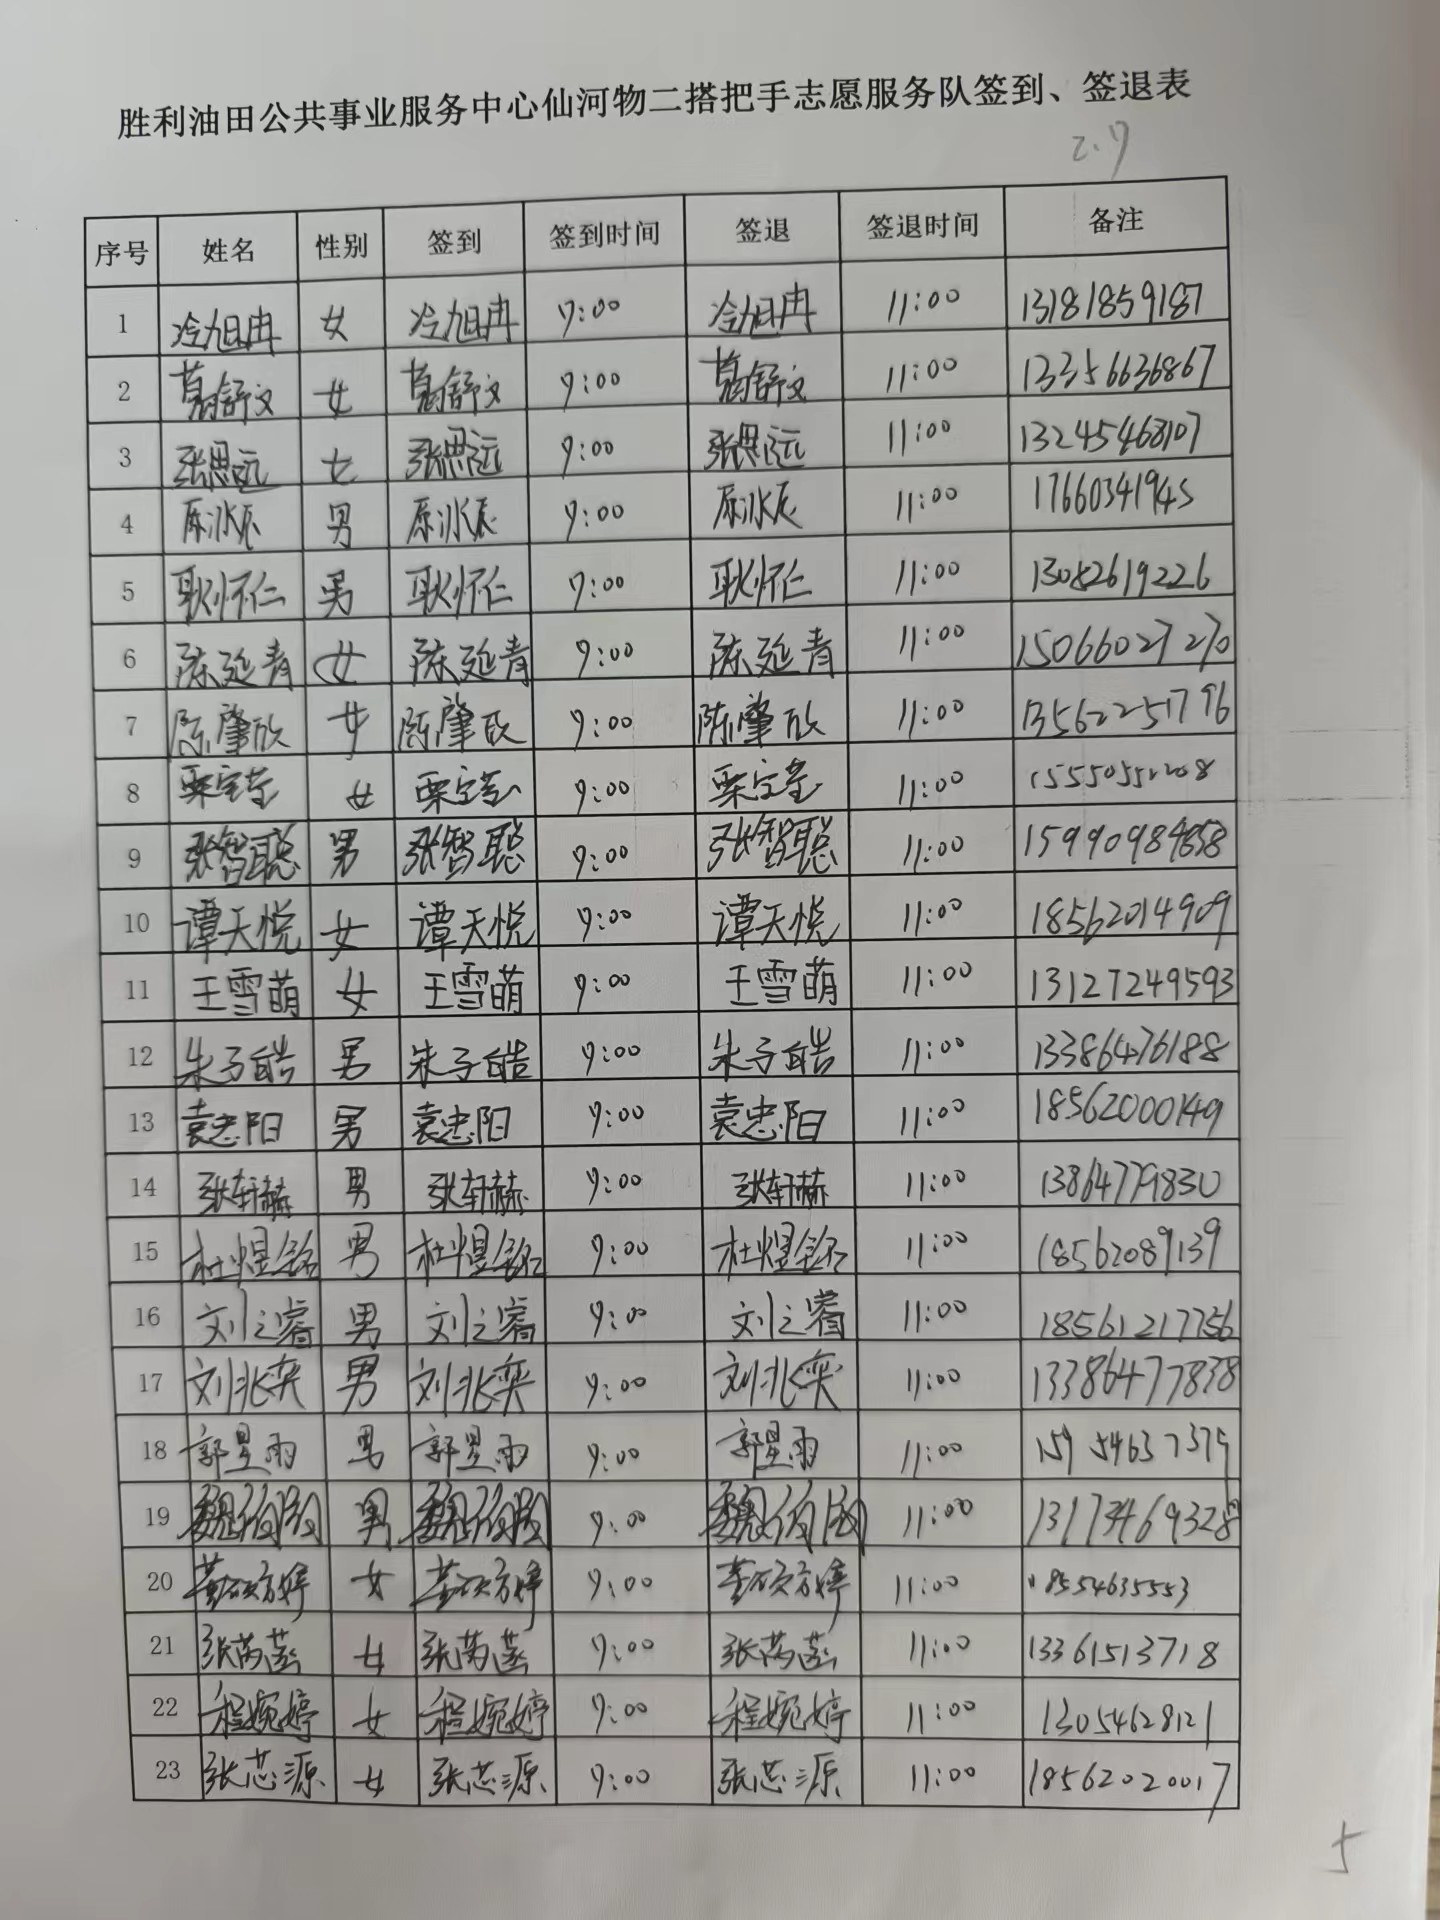 胜利油田公共事业服务中心仙河物二搭把手志愿服务队签到、签退表
2.9
序号 姓名 性别 签到 签到时间 签退 签退时间 备注
1 冷旭冉 女 冷旭冉 9:00 冷旭冉 11:00 13181859187
2 葛舒文 女 葛舒文 9:00 葛舒文 11:00 13356636867
3 张思远 女 张思远 9:00 张思远 11:00 13245468107
4 原冰辰 男 原冰辰 9:00 原冰辰 11:00 17660341945
5 耿怀仁 男 耿怀仁 9:00 耿怀仁 11:00 13082619226
6 陈延青 女 陈延青 9:00 陈延青 11:00 15066027270
7 陈肇欣 女 陈肇欣 9:00 陈肇欣 11:00 13562251796
8 栗宝莹 女 栗宝莹 9:00 栗宝莹 11:00
9 张智聪 男 张智聪 9:00 张智聪 11:00
10 谭天悦 女 谭天悦 9:00 谭天悦 11:00 18562014909
11 王雪萌 女 王雪萌 9:00 王雪萌 11:00 13127249593
12 朱子皓 男 朱子皓 9:00 朱子皓 11:00 13386476188
13 袁忠阳 男 袁忠阳 9:00 袁忠阳 11:00 18562000149
14 张轩赫 男 张轩赫 9:00 张轩赫 11:00 13864779830
15 杜煜铭 男 杜煜铭 9:00 杜煜铭 11:00 18562089139
16 刘之睿 男 刘之睿 9:00 刘之睿 11:00 18561217756
17 刘兆奕 男 刘兆奕 9:00 刘兆奕 11:00 13386477838
18 郭星雨 男 郭星雨 9:00 郭星雨 11:00 15954637379
19 男 9:00 11:00 13173469328
20 董硕方婷 女 董硕方婷 9:00 董硕方婷 11:00 18554635553
21 张芮菡 女 张芮菡 9:00 张芮菡 11:00 13361513718
22 程婉婷 女 程婉婷 9:00 程婉婷 11:00 13054628121
23 张芯源 女 张芯源 9:00 张芯源 11:00 18562020017
5